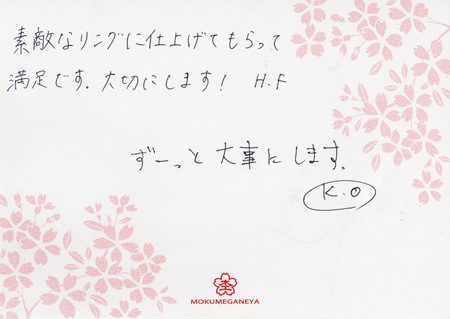 素敵なリングに仕上げてもらって
満足です。大切にします! H.F
ずーっと大事にします。
K.O
MOKUMEGANEYA